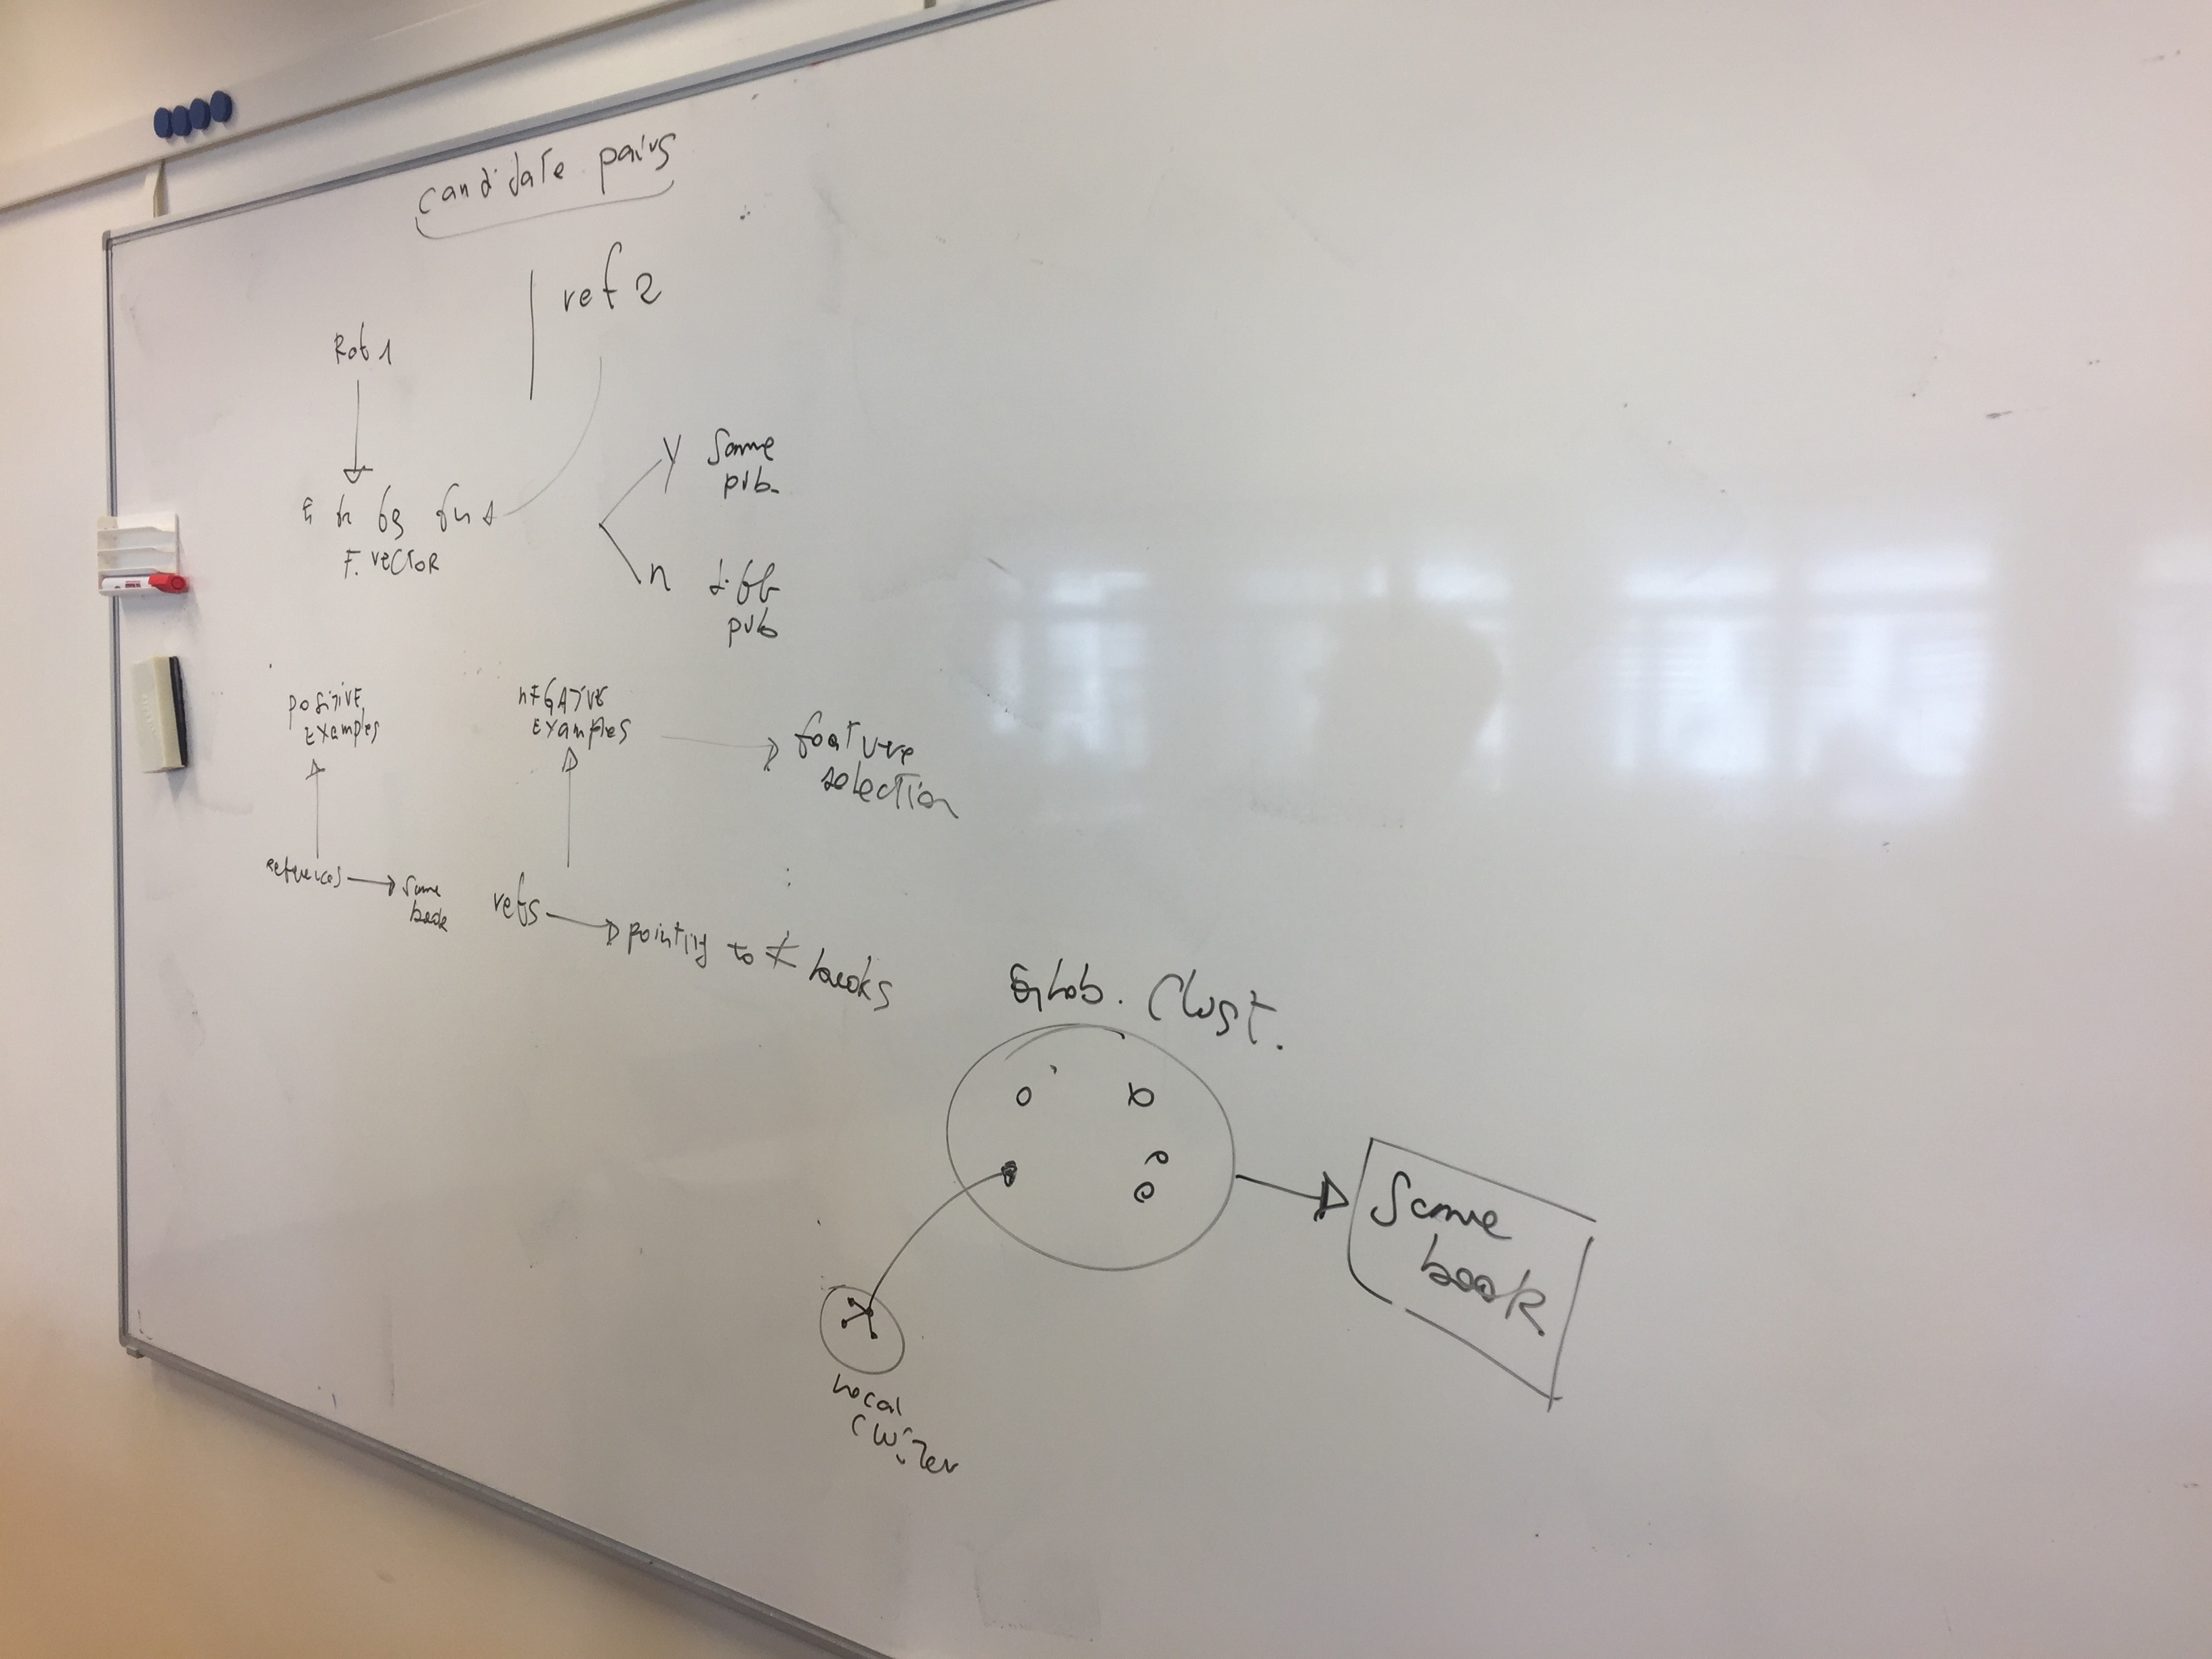 candidate pairs
ref 2
Ref 1
y same
pub.
F. vector
n diff
pub
positive
examples
negative
examples
feature
selection
references
same
book
refs
pointing to ≠ books
Glob. Clust.
Same
book
Local